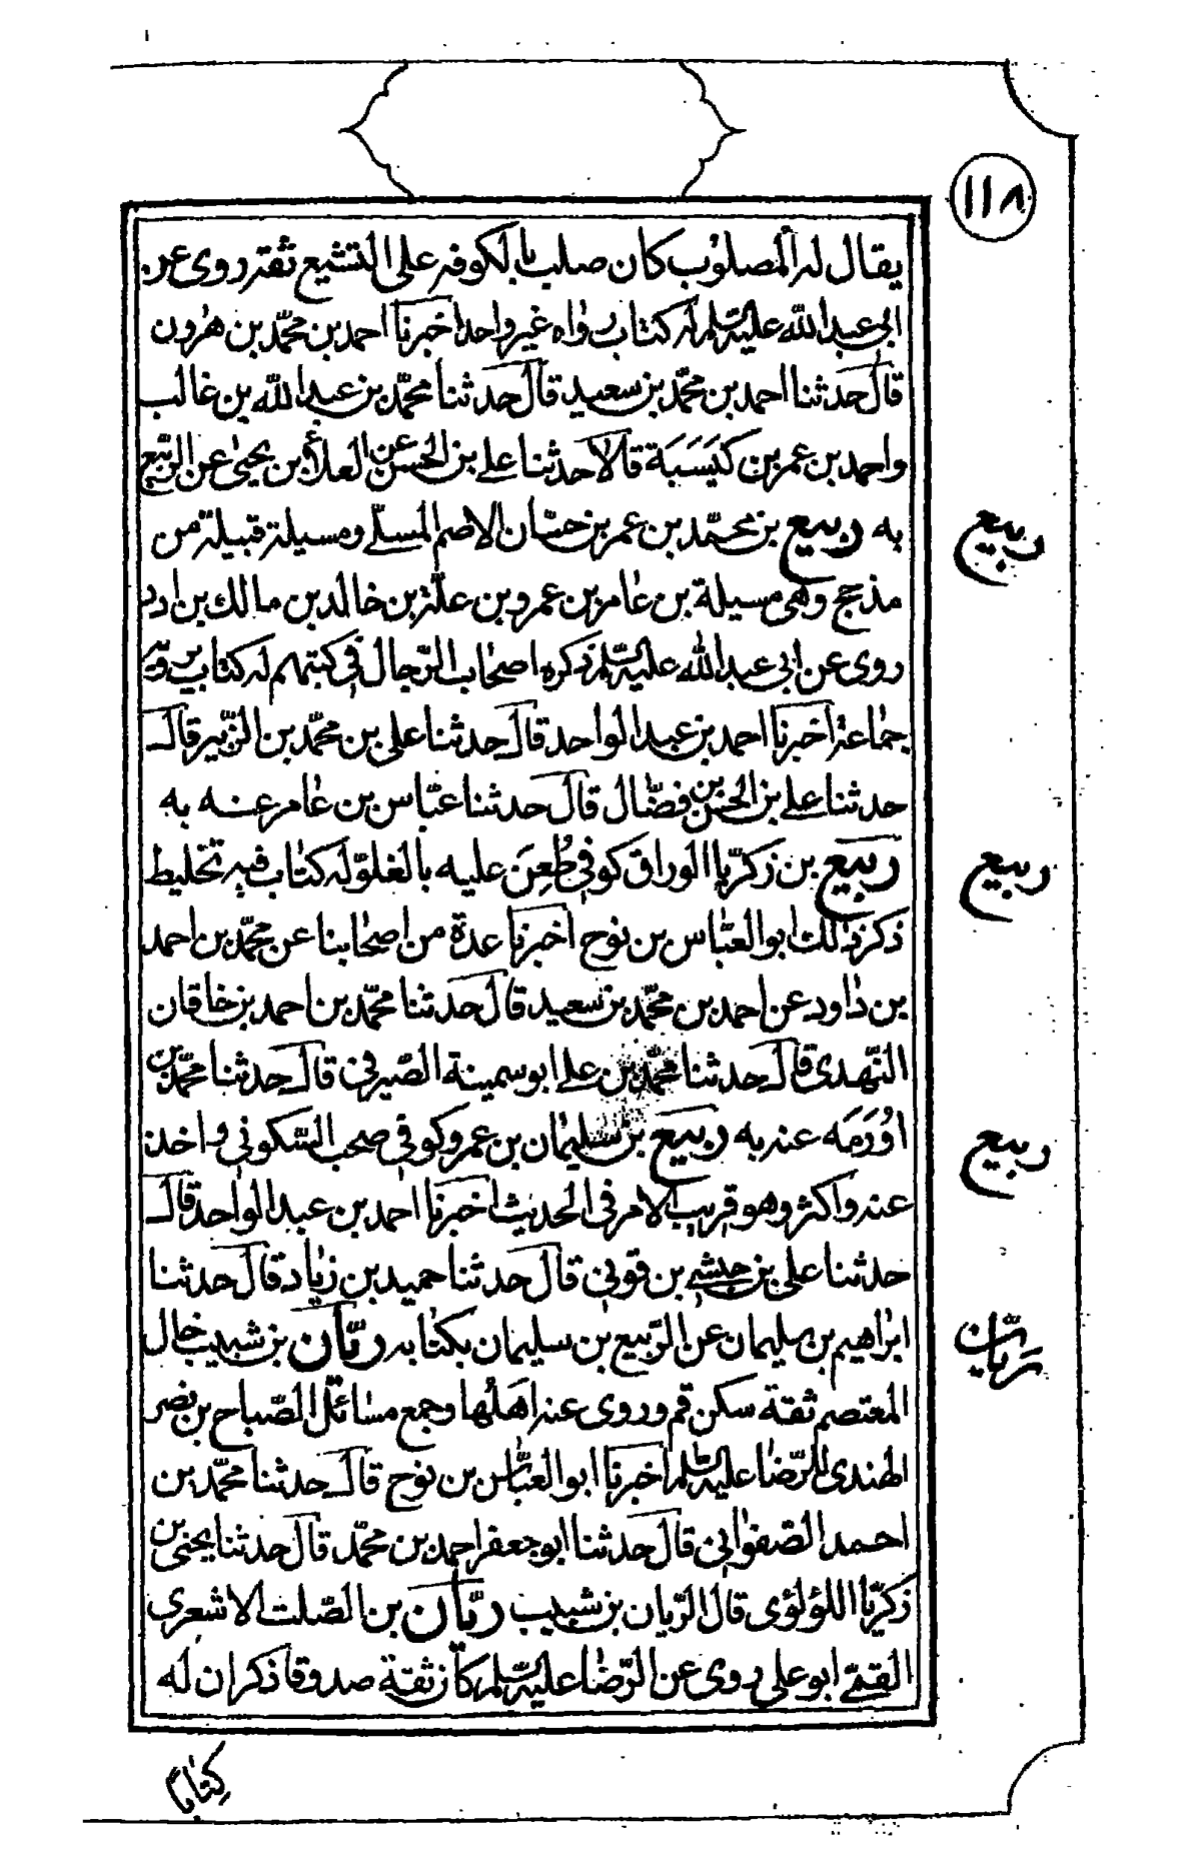 ١١٨
يقال له المصلوب كان صلب بالكوفه على التشيع ثقة روى عن
ابى عبد الله عليه السلم له كتاب رواه غير واحد اخبرنا احمد بن محمد بن هرون
قال حدثنا احمد بن محمد بن سعيد قال حدثنا محمد بن عبد الله بن غالب
واحمد بن عمر بن كَيسَبَة قالا حدثنا علي بن الحسن عن العلاء بن يحيى عن الربيع
به ربيع بن محمد بن عمر بن حسان الاصم المسلي ومسيلة قبيلة من
مذحج وهى مسيلة بن عامر بن عمرو بن علة بن خالد بن مالك بن ادد
روى عن ابى عبد الله عليه السلم ذكره اصحاب الرجال فى كتبهم له كتاب يرويه
جماعة اخبرنا احمد بن عبد الواحد قال حدثنا على بن محمد بن الزبير قال
حدثنا علي بن الحسن بن فضال قال حدثنا عباس بن عامر عنه به
ربيع بن زكريا الوراق كوفي طُعِنَ عليه بالغلو له كتاب فيه تخليط
ذكر ذلك ابو العباس بن نوح اخبرنا عدة من اصحابنا عن محمد بن احمد
بن داود عن احمد بن محمد بن سعيد قال حدثنا محمد بن احمد بن خاقان
النهدى قال حدثنا محمد بن علي ابو سمينة الصيرفى قال حدثنا محمد بن
اُورَمَه عنه به ربيع بن سليمان بن عمرو كوفي صحب السكونى واخذ
عنه واكثر وهو قريب الامر فى الحديث اخبرنا احمد بن عبد الواحد قال
حدثنا على بن حبشي بن قونى قال حدثنا حميد بن زياد قال حدثنا
ابراهيم بن سليمان عن الربيع بن سليمان بكتابه ريّان بن شبيب خال
المعتصم ثقة سكن قم وروى عنه اهلها وجمع مسائل الصباح بن نصر
الهندى للرضا عليه السلم اخبرنا ابو العباس بن نوح قال حدثنا محمد بن
احمد الصفوانى قال حدثنا ابو جعفر احمد بن محمد قال حدثنا يحيى بن
زكريا اللؤلؤى قال الريان بن شبيب ريّان بن الصلت الاشعرى
القمي ابو على روى عن الرضا عليه السلم كان ثقة صدوقا ذكر ان له
كِتابا
ربيع
ربيع
ربيع
ريّان